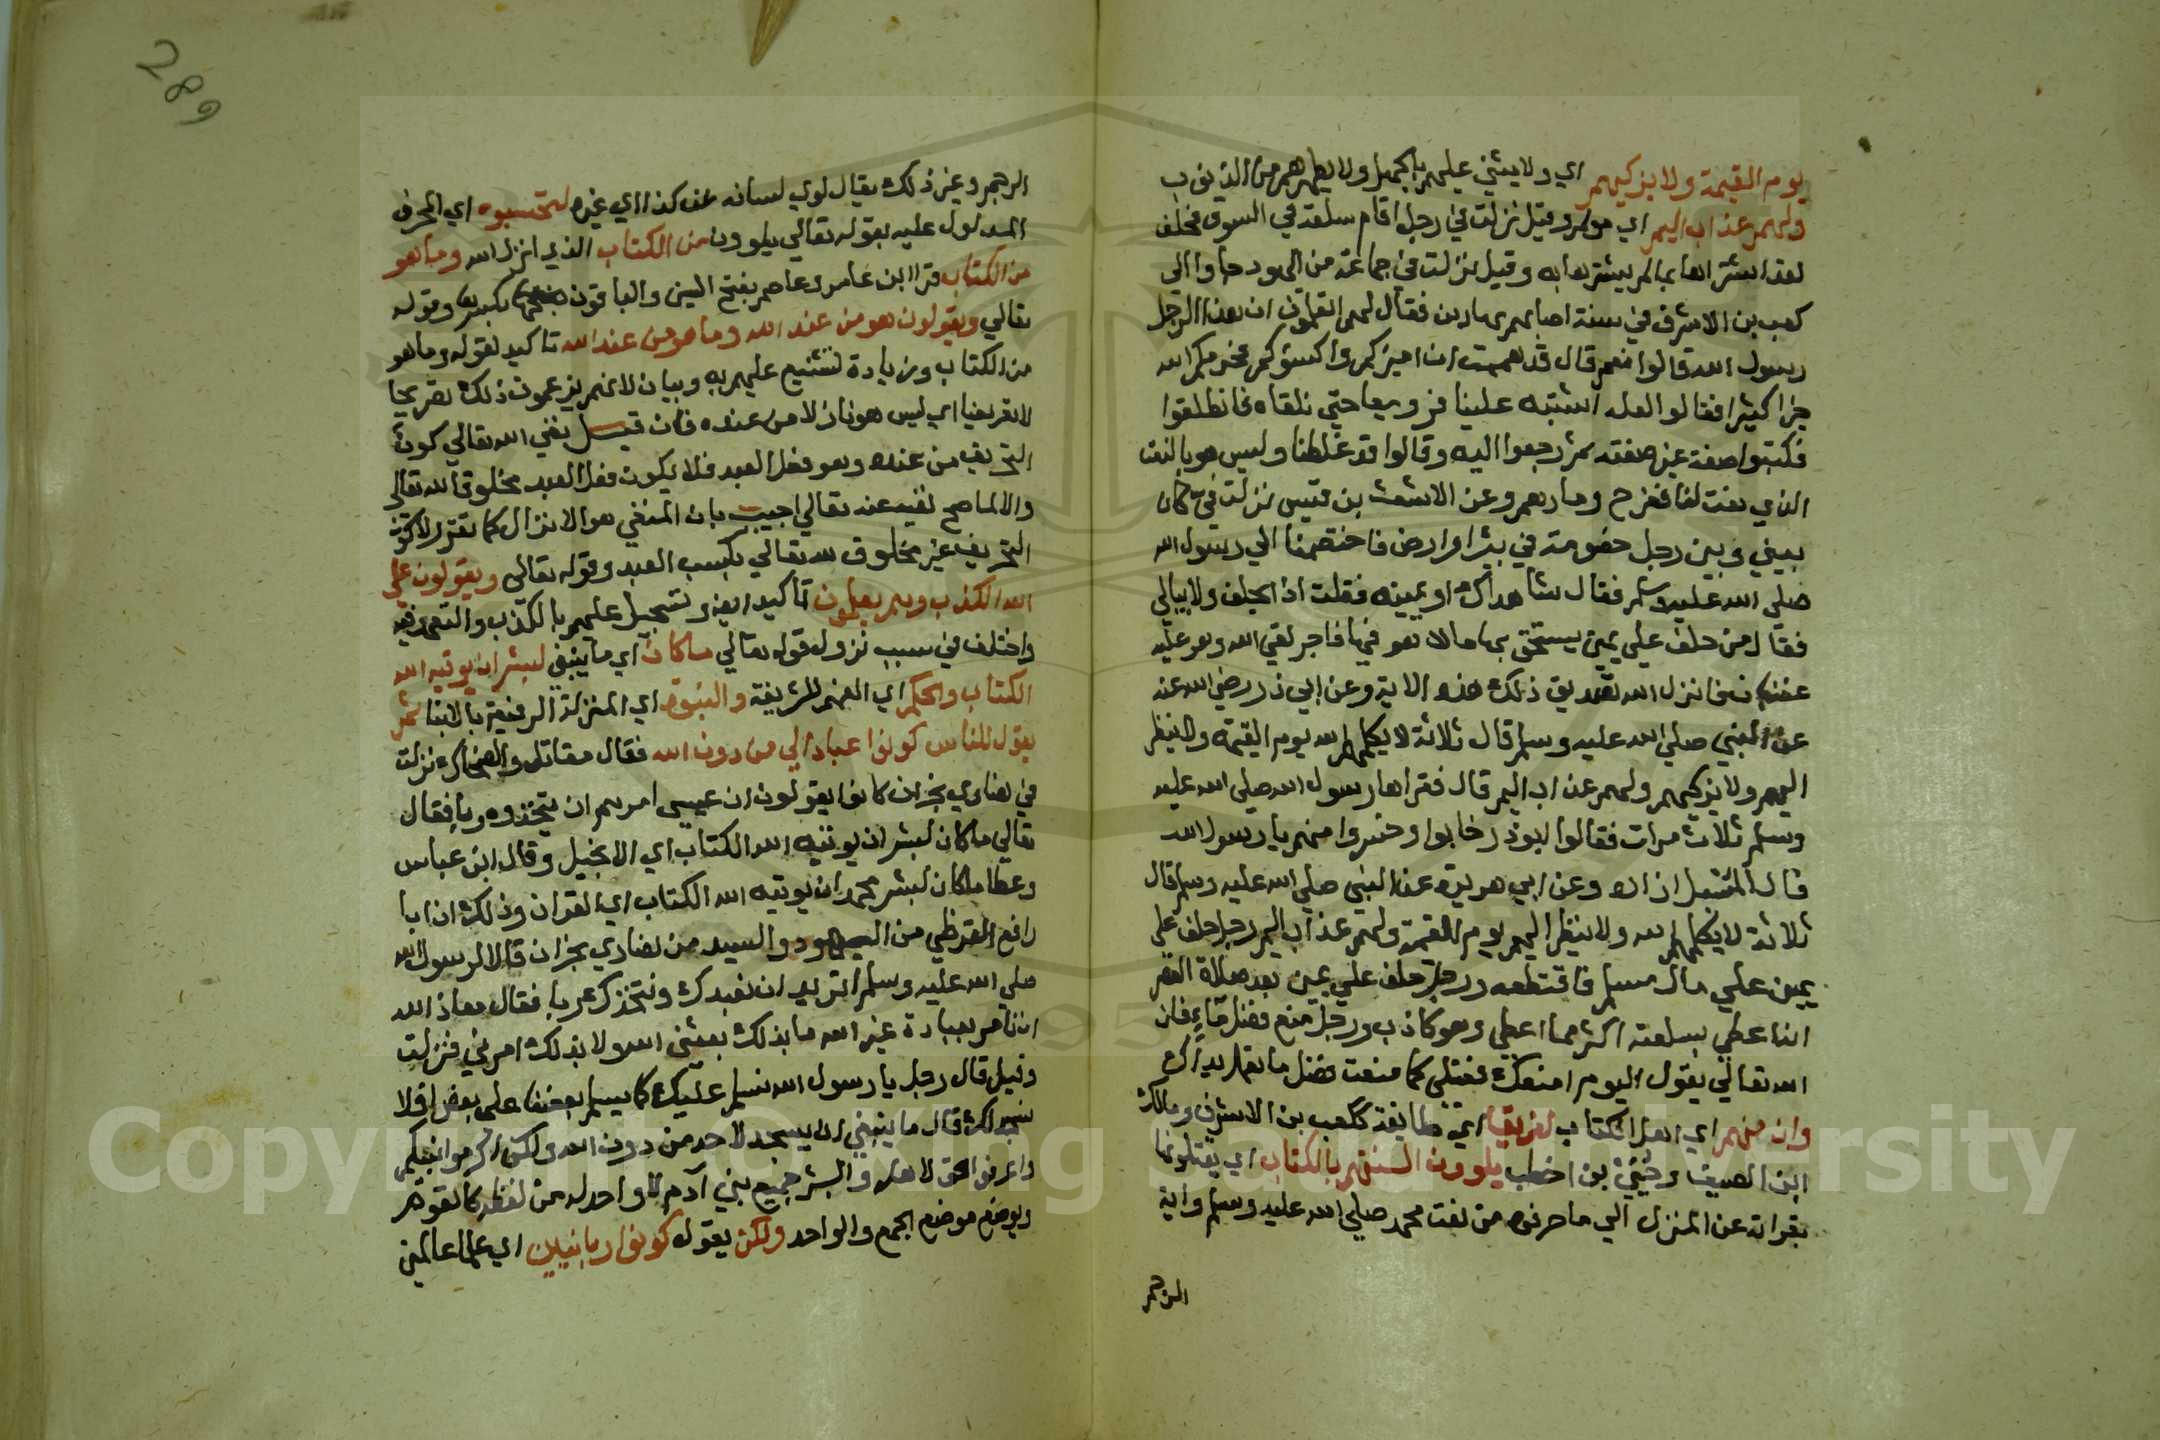 يوم القيمة ولا يزكيهم اي ولا يثني عليهم بالجميل ولا يطهرهم من الذنوب
ولهم عذاب اليم اي مولم وقيل نزلت في رجل اقام سلعة في السوق فحلف
لقد اشتراها بما لم يشترها به وقيل نزلت في جماعة من اليهود جاوا الى
كعب بن الاشرف في سنة اصابتهم ممتارين فقال لهم اتعلمون ان هذا الرجل
رسول الله قالوا نعم قال قد هممت ان اميركم واكسوكم فحرمكم الله
خيرا كثيرا فقالوا لعله اشتبه علينا فرويدا حتي نلقاه فانطلقوا
فكتبوا صفة غير صفته ثم رجعوا اليه وقالوا قد غلطنا وليس هو بالنعت
الذي نعت لنا ففرح ومارهم وعن الاشعث بن قيس نزلت في كان
بيني وبين رجل خصومة في بئر او ارض فاختصمنا الي رسول الله
صلى الله عليه وسلم فقال شاهداك او يمينه فقلت اذا يحلف ولا يبالي
فقال من حلف علي يمين يستحق بها مالا هو فيها فاجر لقي الله وهو عليه
غضبان فانزل الله تصديق ذلك هذه الاية وعن ابي ذر رضي الله عنه
عن النبي صلي الله عليه وسلم قال ثلاثة لا يكلمهم الله يوم القيمة ولا ينظر
اليهم ولا يزكيهم ولهم عذاب اليم قال فقراها رسول الله صلى الله عليه
وسلم ثلاث مرات فقالوا ابوذر خابوا وخسروا منهم يا رسول الله
قال المسبل ازاره وعن ابي هريرة عن النبي صلي الله عليه وسلم قال
ثلاثة لا يكلمهم الله ولا ينظر اليهم يوم القيمة ولهم عذاب اليم رجل حلف علي
يمين علي مال مسلم فاقتطعه ورجل حلف علي يمين بعد صلاة العصر
انه اعطي بسلعته اكثر مما اعطي وهو كاذب ورجل منع فضل ماء فان
الله تعالي يقول اليوم امنعك فضلي كما منعت فضل ما لم تعمل يداك
وان منهم اي اهل الكتاب لفريقا اي طايفة ككعب بن الاشرف ومالك
ابن الصيف وحيي بن اخطب يلوون السنتهم بالكتاب اي يفتلونها
بقراته عن المنزل الي ما حرفوه من نعت محمد صلي الله عليه وسلم واية
الرجم
289
الرجم وغير ذلك يقال لوي لسانه عن كذا اي غيره لتحسبوه اي المحرف
المدلول عليه بقوله تعالي يلوون من الكتاب الذي انزل الله وما هو
من الكتاب قرا ابن عامر وعاصم بفتح السين والباقون بكسرها وقوله
تعالي ويقولون هو من عند الله وما هو من عند الله تاكيد لقوله وما هو
من الكتاب وزيادة تشنيع عليهم به وبيان لانهم يزعمون ذلك تصريحا
لا تعريضا اي ليس هو نازلا من عنده فان قيل نفي الله تعالي كون
التحريف من عنده وهو فعل العبد فلا يكون فعل العبد مخلوقا لله تعالي
والا لما صح نفيه عنه تعالي اجيب بان المنفي هو الانزال كما تقرر لا كون
التحريف غير مخلوق لله تعالي بكسب العبد وقوله تعالي ويقولون علي
الله الكذب وهم يعلمون تأكيد ايضا وتسجيل عليهم بالكذب والتعمد فيه
واختلف في سبب نزول قوله تعالي ما كان اي ما ينبغي لبشر ان يوتيه الله
الكتاب والحكم اي الفهم للشريعة والنبوة اي المنزلة الرفيعة بالانبا ثم
يقول للناس كونوا عبادا لي من دون الله فقال مقاتل والضحاك نزلت
في نصاري نجران كانوا يقولون ان عيسى امرهم ان يتخذوه ربا فقال
تعالي ما كان لبشر ان يوتيه الله الكتاب اي الانجيل وقال ابن عباس
وعطا ما كان لبشر محمد ان يوتيه الله الكتاب اي القران وذلك ان ابا
رافع القرظي من اليهود والسيد من نصاري نجران قالا لرسول الله
صلي الله عليه وسلم اتريد ان نعبدك ونتخذك ربا فقال معاذ الله
ان نامر بعبادة غير الله ما بذلك بعثني الله ولا بذلك امرني فنزلت
وقيل قال رجل يا رسول الله نسلم عليك كما يسلم بعضنا على بعض افلا
نسجد لك قال ما ينبغي ان يسجد لاحد من دون الله ولكن اكرموا نبيكم
واعرفوا الحق لاهله والبشر جميع بني آدم لا واحد له من لفظه كالقوم
ويوضع موضع الجمع والواحد ولكن يقول كونوا ربانيين اي علما عالمين
Copyright © King Saud University